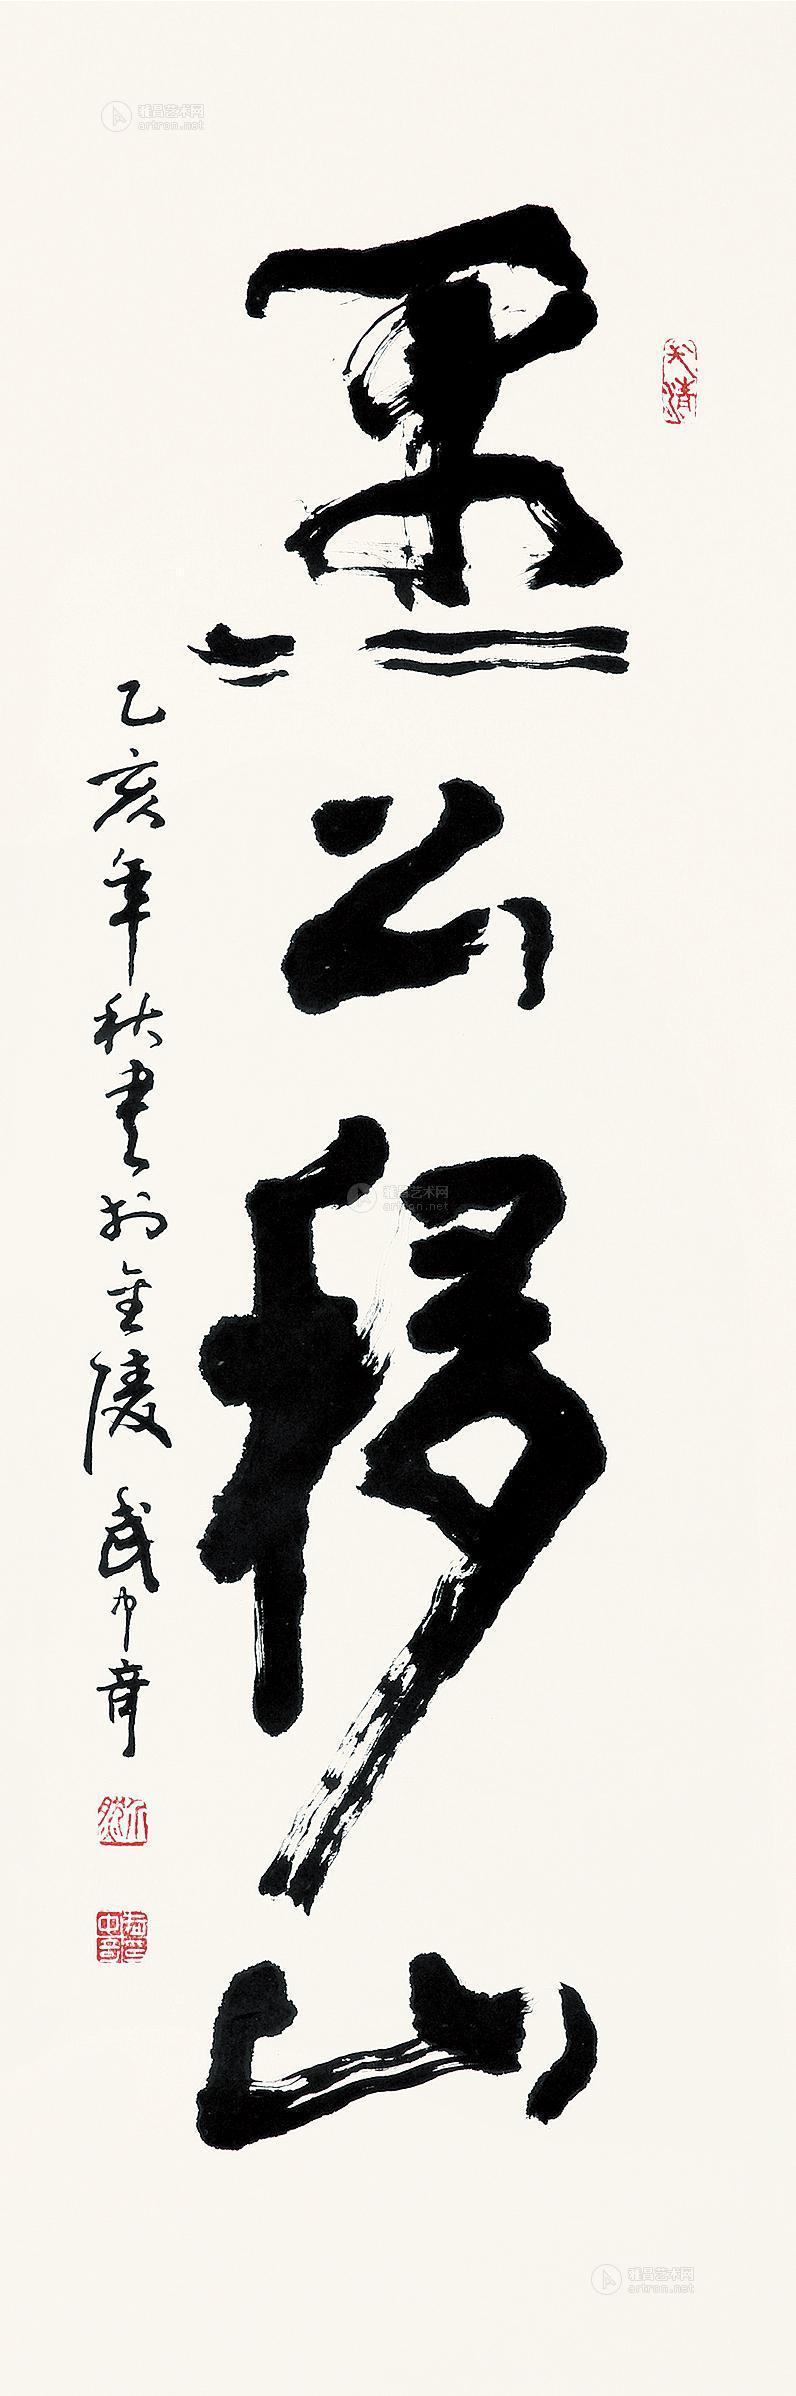 愚公移山
乙亥年秋书于金陵武中奇
武中奇印
雅昌艺术网
artron.net
雅昌艺术网
artron.net
雅昌艺术网
artron.net